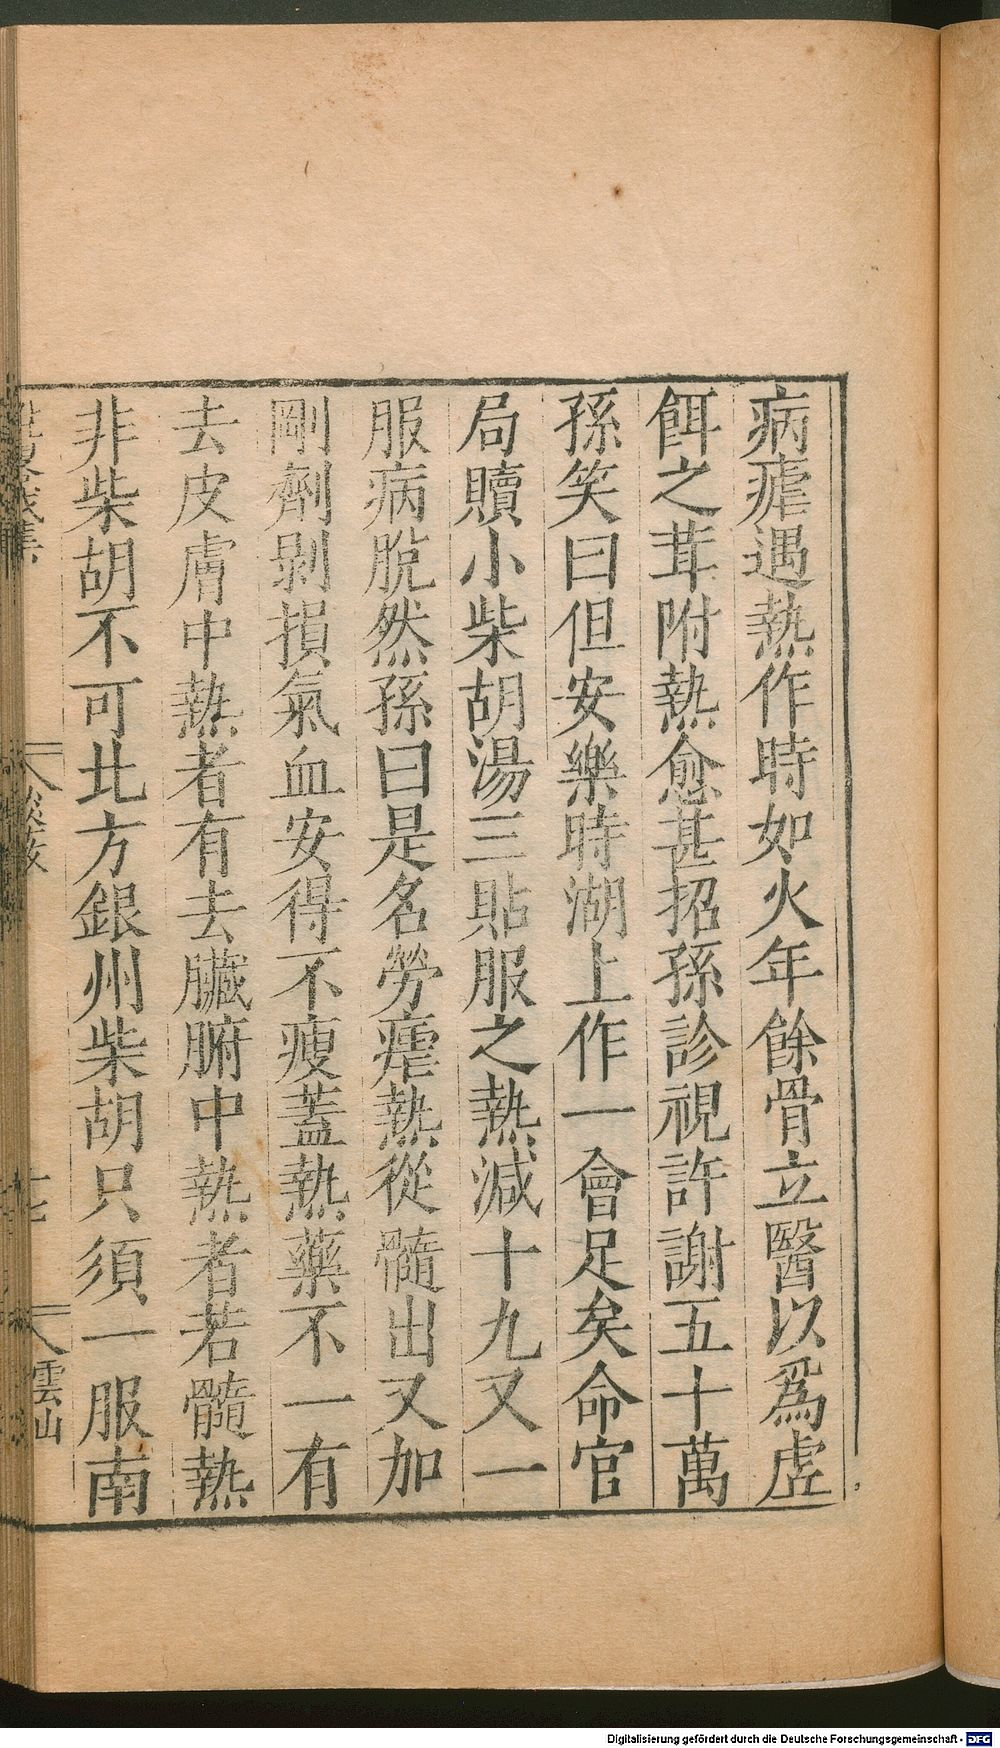 病瘧遇熱作時如火年餘骨立醫以爲虛
餌之茸附熱愈甚招孫診視許謝五十萬
孫笑曰但安樂時湖上作一會足矣命官
局贖小柴胡湯三貼服之熱減十九又一
服病脫然孫曰是名勞瘧熱從髓出又加
剛劑剝損氣血安得不瘦蓋熱藥不一有
去皮膚中熱者有去臟腑中熱者若髓熱
非柴胡不可北方銀州柴胡只須一服南
雲山
Digitalisierung gefördert durch die Deutsche Forschungsgemeinschaft - DFG